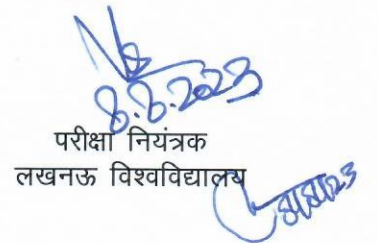 8.8.2023
परीक्षा नियंत्रक
लखनऊ विश्वविद्यालय